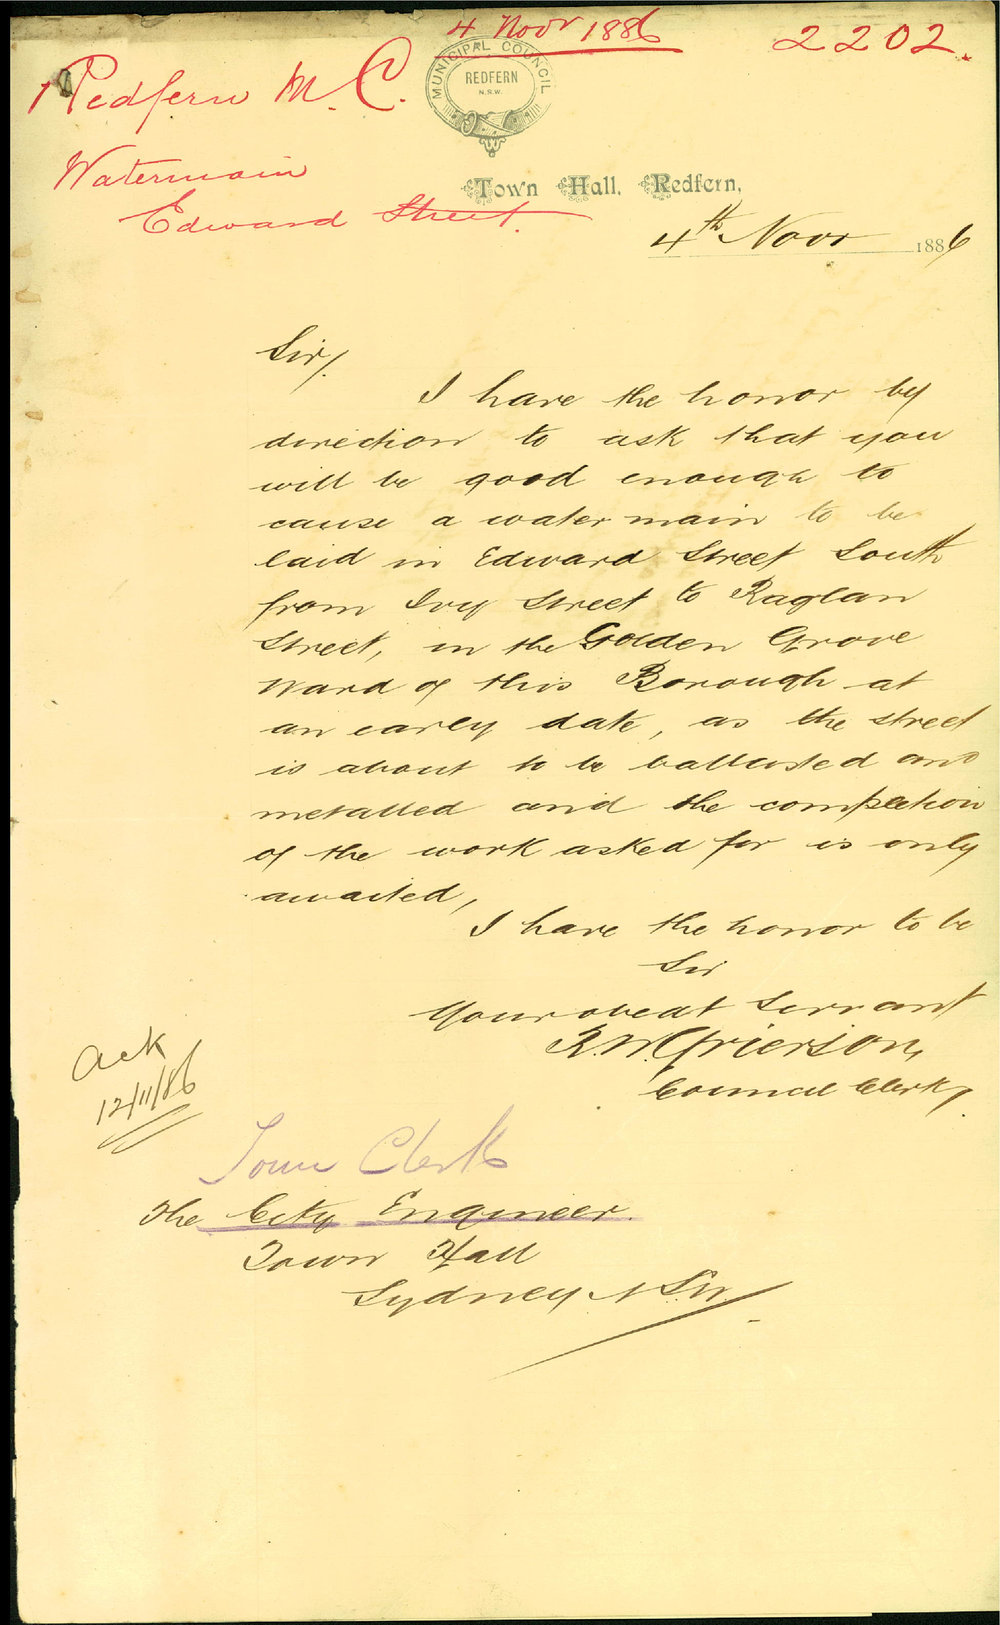 4 Novr 1886
2202.
Redfern M. C.
MUNICIPAL COUNCIL
REDFERN
N.S.W.
Watermain
Edward Street.
Town Hall, Redfern,
4th Novr 1886
Sir/.
I have the honor by
direction to ask that you
will be good enough to
cause a water main to be
laid in Edward Street South
from Ivy Street to Raglan
Street, in the Golden Grove
Ward of this Borough at
an early date, as the street
is about to be ballasted and
metalled and the completion
of the work asked for is only
awaited,
I have the honor to be
Sir
Your obedt Servant
R.W. Grierson,
Council Clerk,
Ack
12/11/86
Town Clerk
The City Engineer.
Town Hall
Sydney N S W